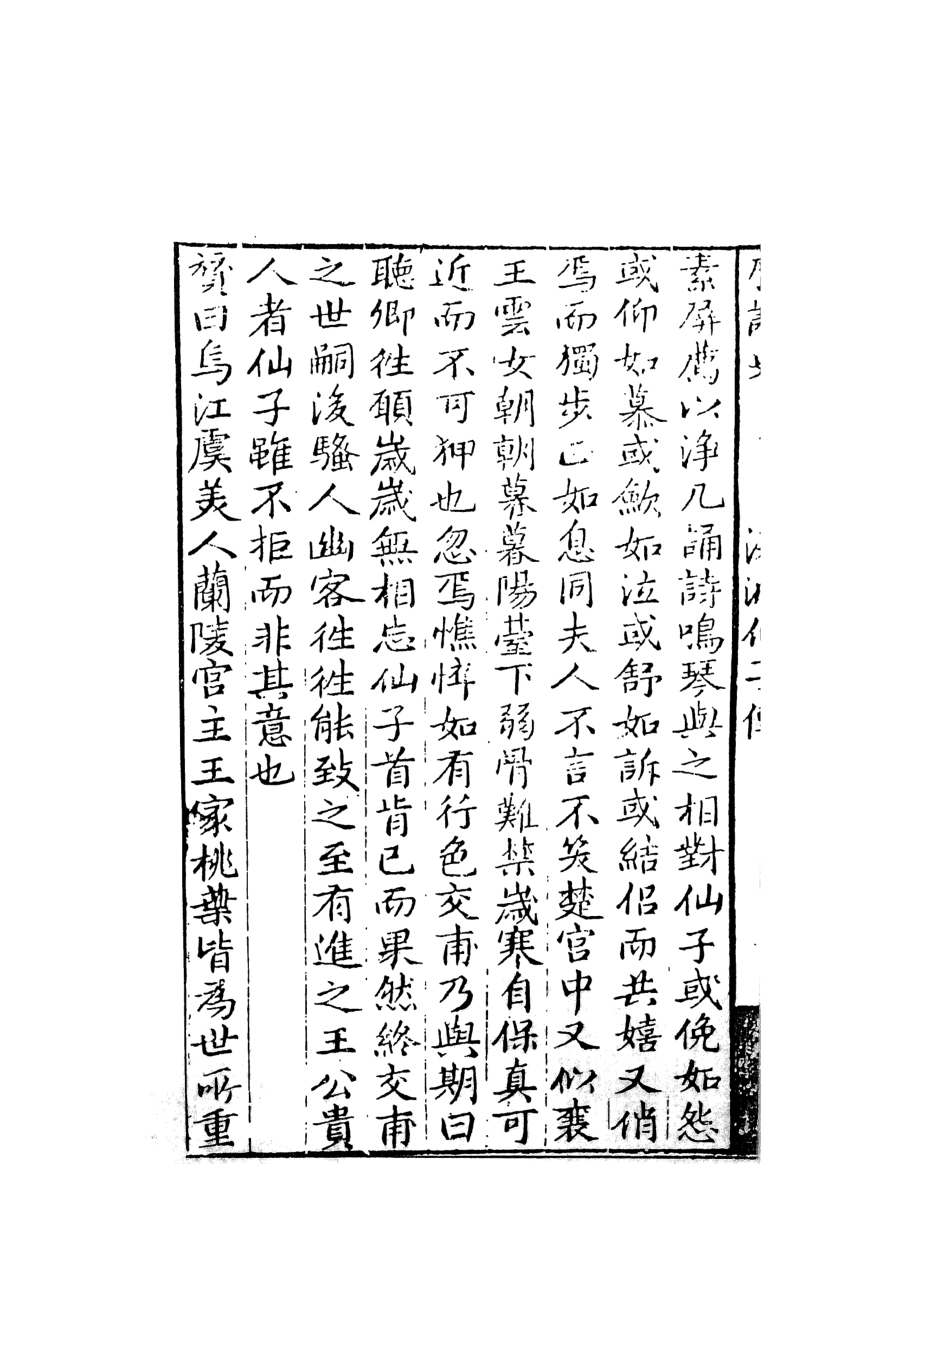 素屏薦以淨几誦詩鳴琴與之相對仙子或俛如怨
或仰如慕或歛如泣或舒如訴或結侶而共嬉又悄
焉而獨步已如息同夫人不言不笑楚宮中又似襄
王雲女朝朝暮暮陽臺下弱骨難禁歲寒自保真可
近而不可狎也忽焉憔悴如有行色交甫乃與期曰
聽卿徃願歲歲無相忘仙子首肯已而果然終交甫
之世嗣後騷人幽客徃徃能致之至有進之王公貴
人者仙子雖不拒而非其意也
贊曰烏江虞美人蘭陵宮主王家桃葉皆為世所重